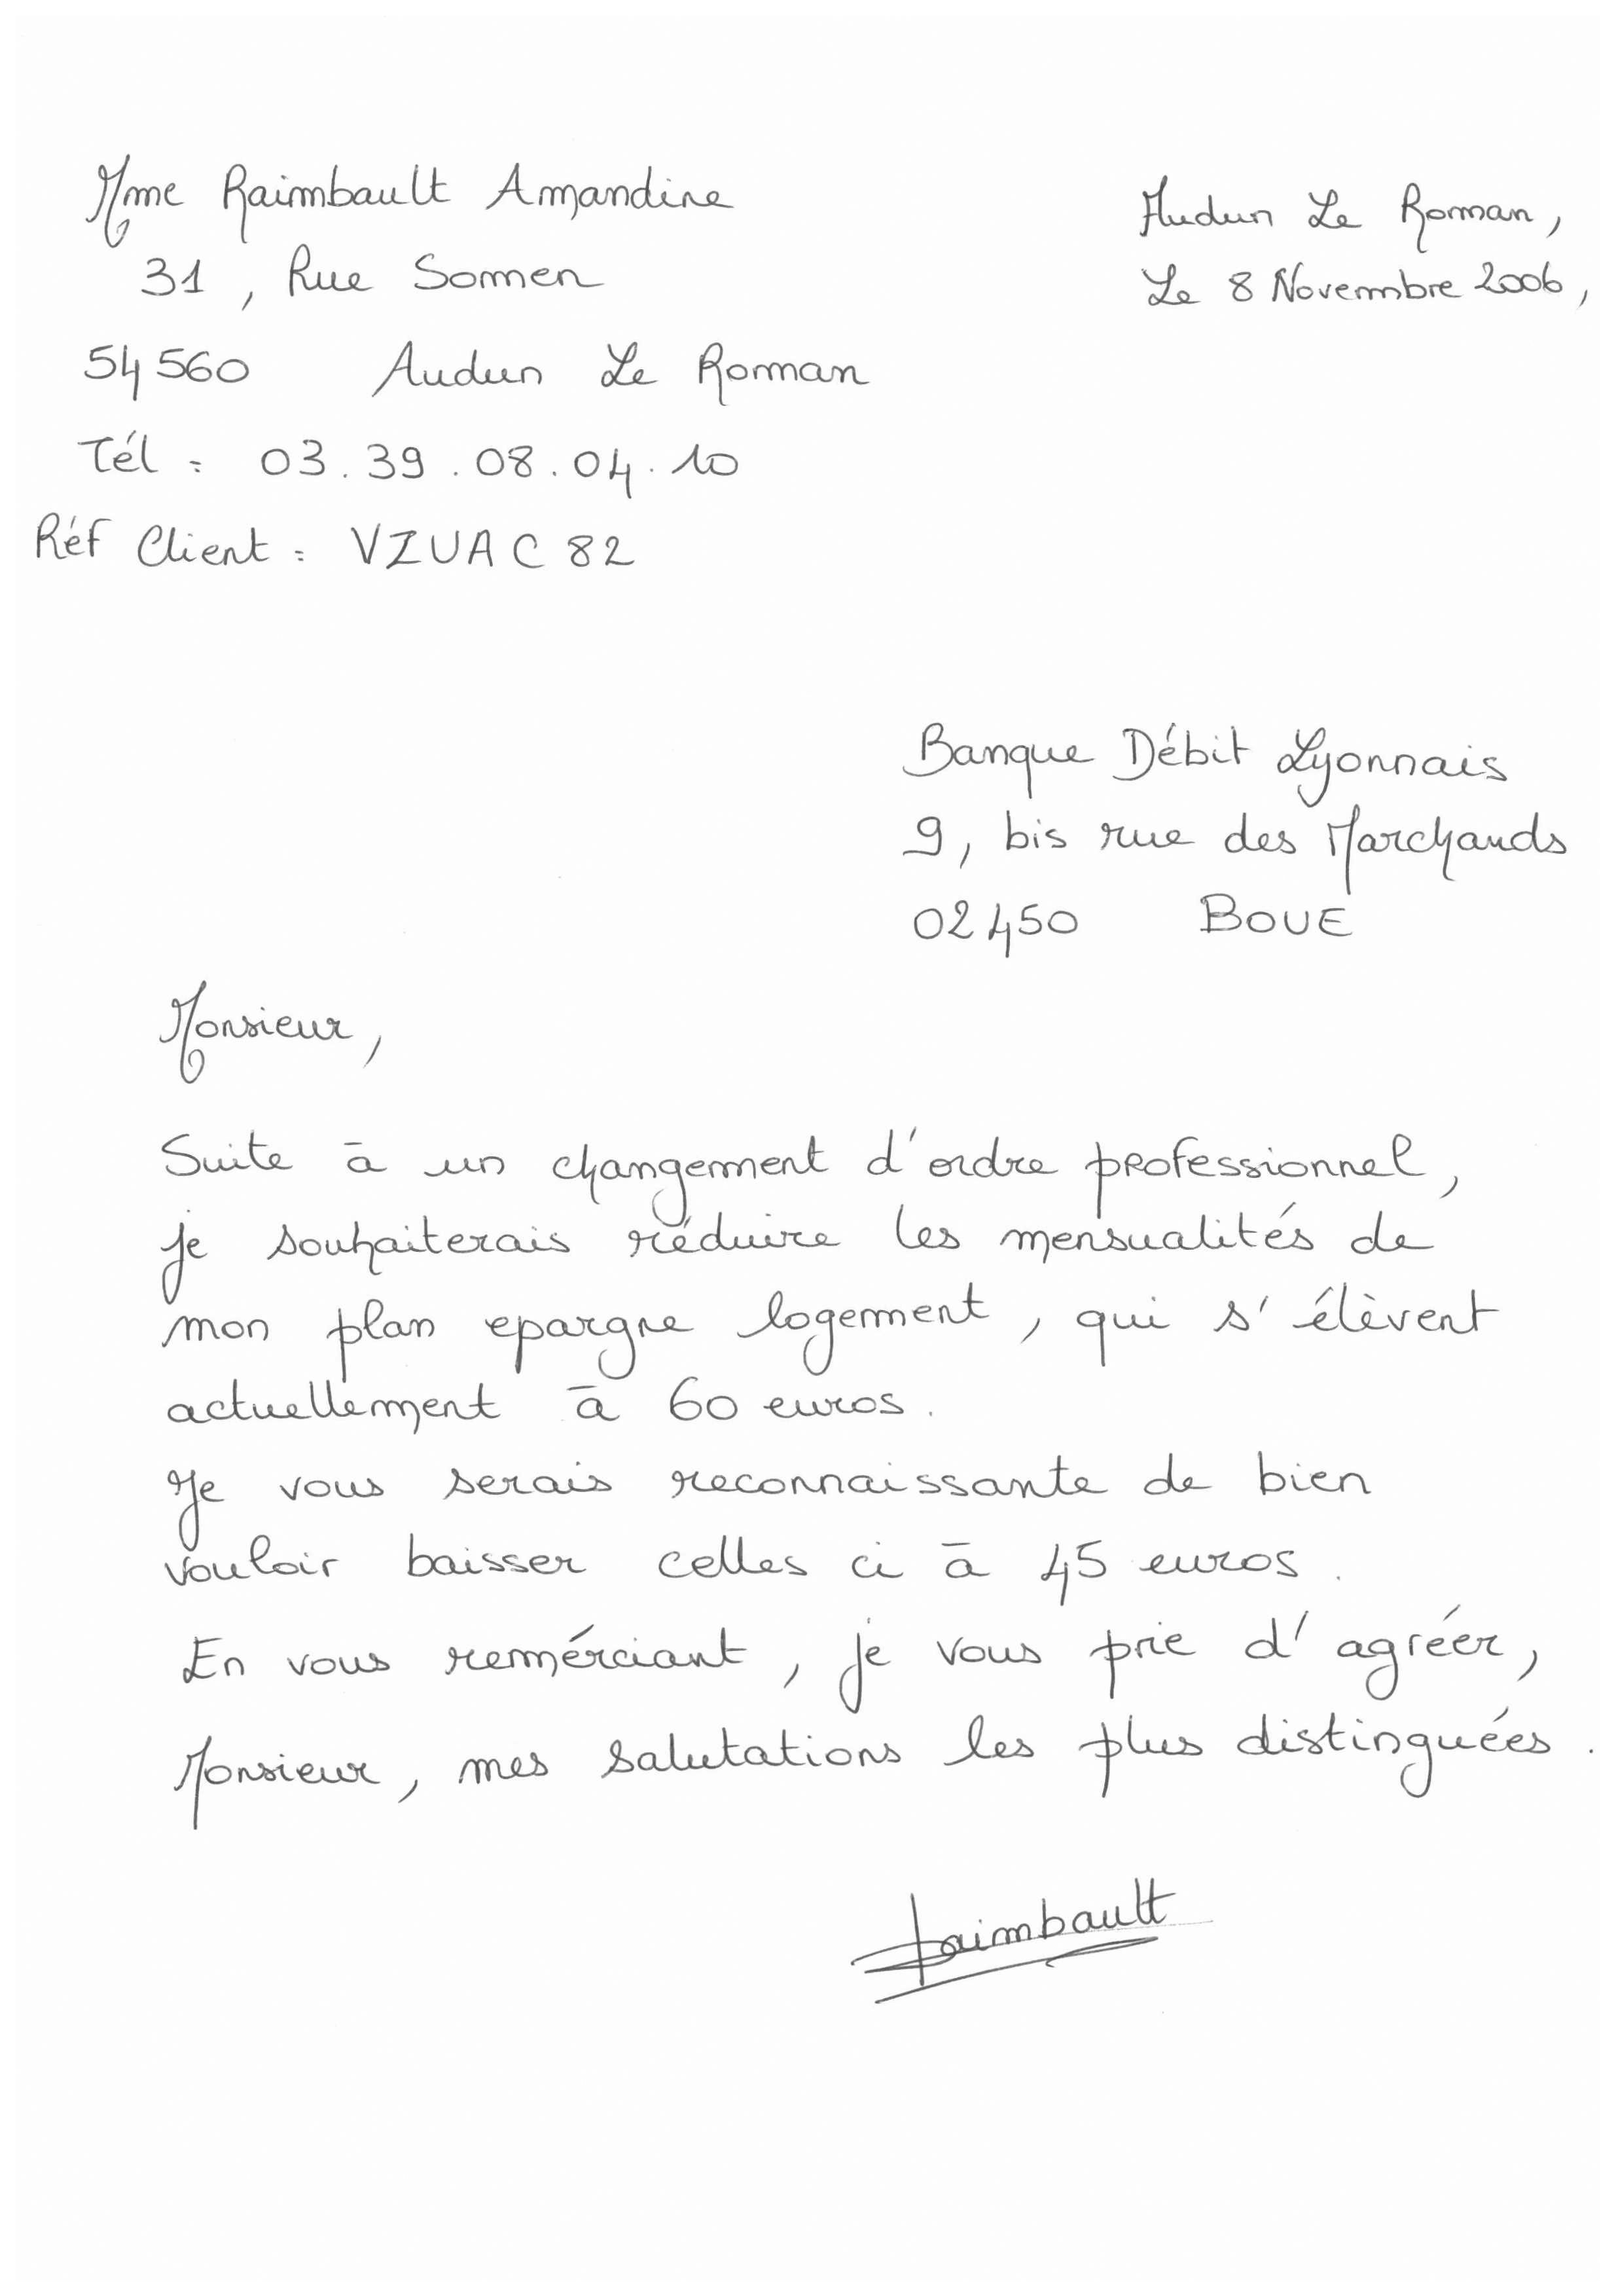 Mme Raimbault Amandine
31, Rue Sommen
54560 Audun Le Roman
Tél : 03.39.08.04.10
Réf Client : VZUAC82
Audun Le Roman,
Le 8 Novembre 2006,
Banque Débit Lyonnais
9, bis rue des Marchands
02450 BOUE
Monsieur,
Suite à un changement d'ordre professionnel,
je souhaiterais réduire les mensualités de
mon plan epargne logement, qui s'élèvent
actuellement à 60 euros.
Je vous serais reconnaissante de bien
vouloir baisser celles ci à 45 euros.
En vous remérciant, je vous prie d'agréer,
Monsieur, mes salutations les plus distinguées.
Raimbault